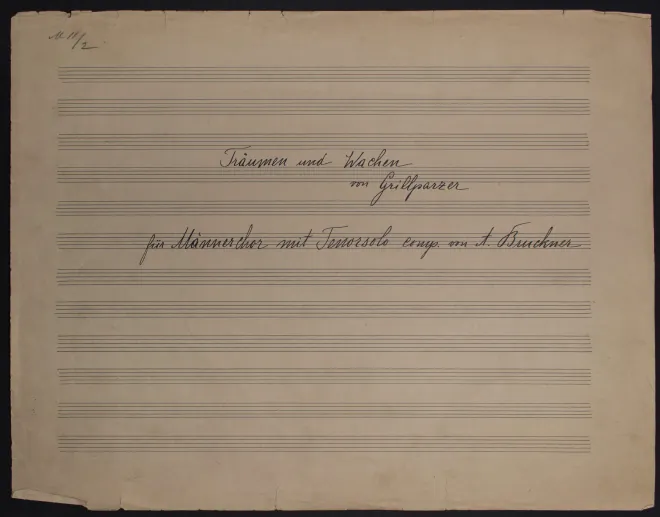 Träumen und Wachen
von Grillparzer
für Männerchor mit Tenorsolo comp. von A. Bruckner